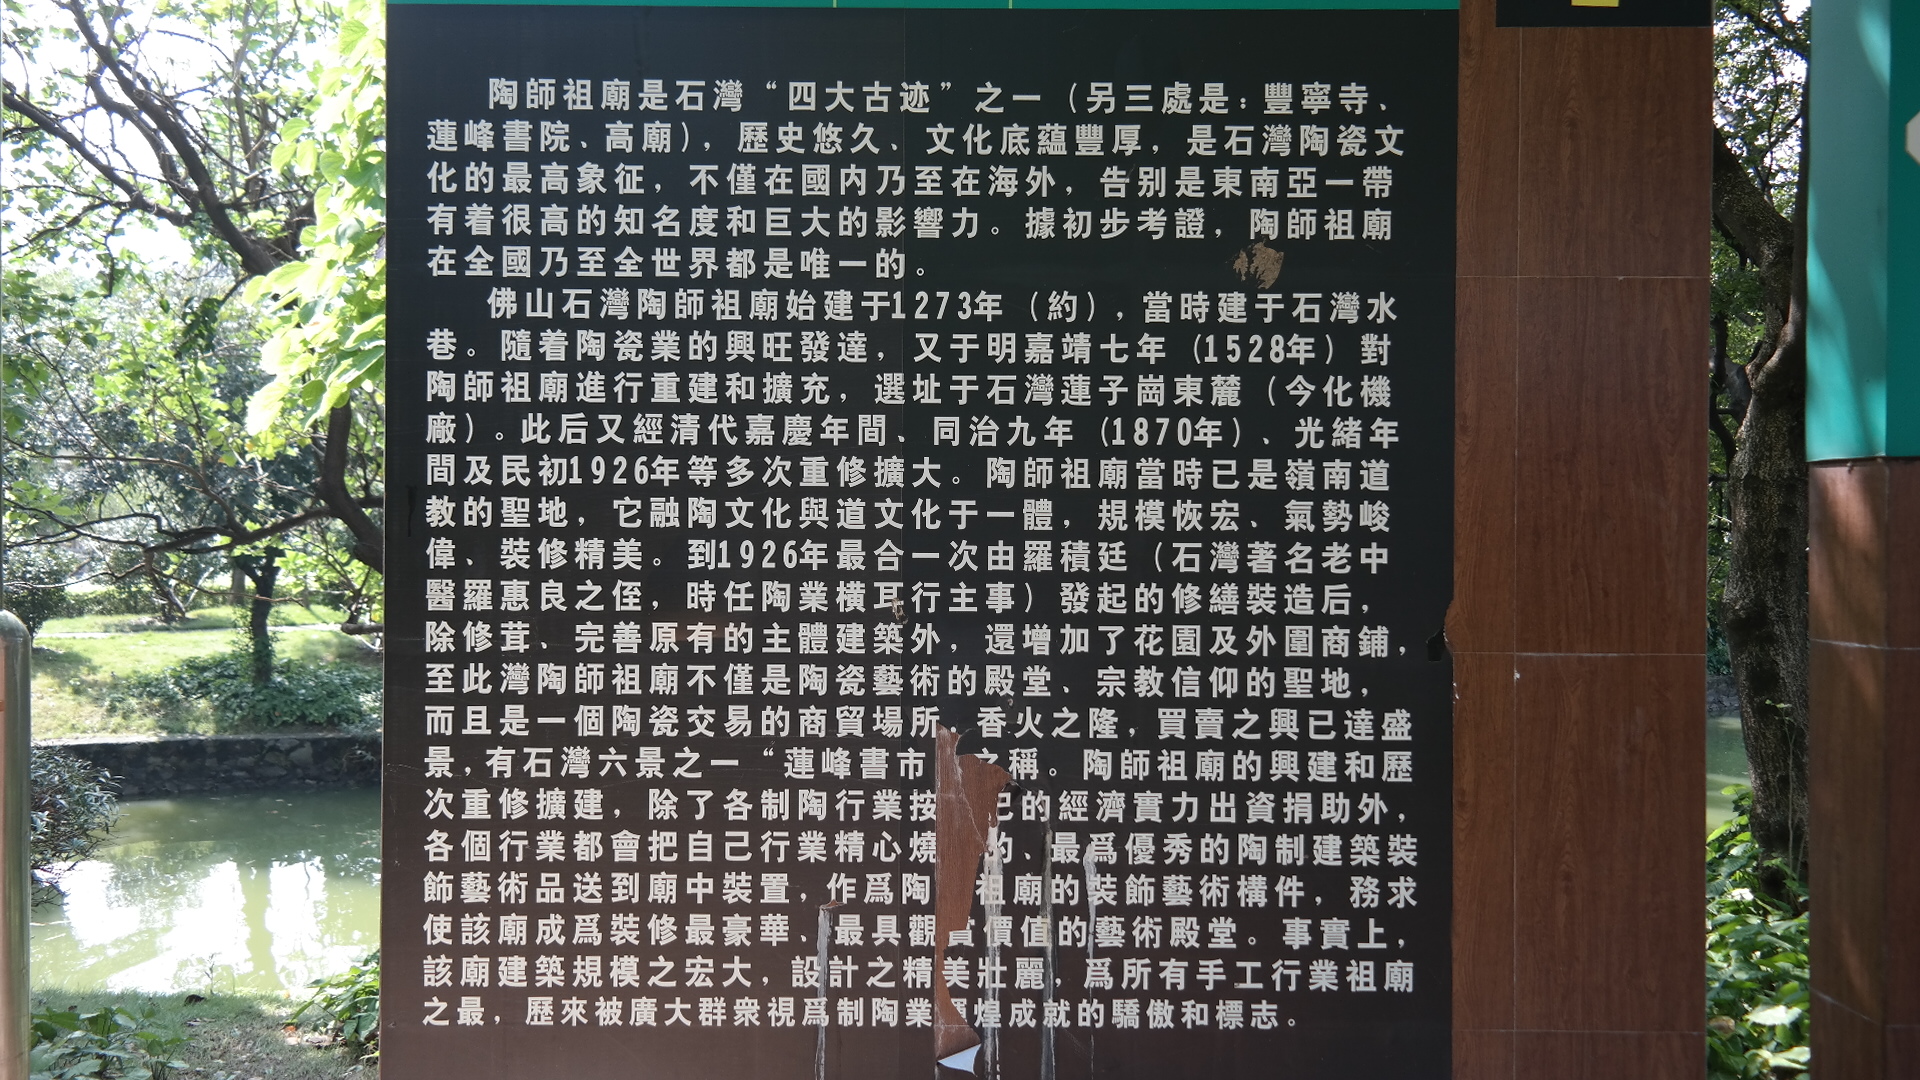 陶師祖廟是石灣“四大古迹”之一（另三處是：豐寧寺、
蓮峰書院、高廟），歷史悠久、文化底蘊豐厚，是石灣陶瓷文
化的最高象征，不僅在國内乃至在海外，告别是東南亞一帶
有着很高的知名度和巨大的影響力。據初步考證，陶師祖廟
在全國乃至全世界都是唯一的。
佛山石灣陶師祖廟始建于1273年（約），當時建于石灣水
巷。隨着陶瓷業的興旺發達，又于明嘉靖七年（1528年）對
陶師祖廟進行重建和擴充，選址于石灣蓮子崗東麓（今化機
廠）。此后又經清代嘉慶年間、同治九年（1870年）、光緒年
間及民初1926年等多次重修擴大。陶師祖廟當時已是嶺南道
教的聖地，它融陶文化與道文化于一體，規模恢宏、氣勢峻
偉、裝修精美。到1926年最合一次由羅積廷（石灣著名老中
醫羅惠良之侄，時任陶業横耳行主事）發起的修繕裝造后，
除修茸、完善原有的主體建築外，還增加了花園及外圍商鋪，
至此灣陶師祖廟不僅是陶瓷藝術的殿堂、宗教信仰的聖地，
而且是一個陶瓷交易的商貿場所。香火之隆，買賣之興已達盛
景，有石灣六景之一“蓮峰書市 之稱。陶師祖廟的興建和歷
次重修擴建，除了各制陶行業按 己的經濟實力出資捐助外，
各個行業都會把自己行業精心燒 的、最爲優秀的陶制建築裝
飾藝術品送到廟中裝置，作爲陶 祖廟的裝飾藝術構件，務求
使該廟成爲裝修最豪華、最具觀賞價值的藝術殿堂。事實上，
該廟建築規模之宏大，設計之精美壯麗，爲所有手工行業祖廟
之最，歷來被廣大群衆視爲制陶業 煌成就的驕傲和標志。